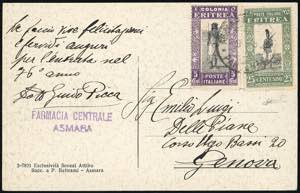 Le faccio vive felicitazioni
e fervidi auguri
per l'entrata nel
76° anno
Dott Guido Picca
FARMACIA CENTRALE
ASMARA
COLONIA
ERITREA
POSTE
ITALIANE
ERITREA
25 CENTESIMI 25
Sig Emilio Luigi
Delle Piane
Corso Ugo Bassi 20
Genova
2-7921 Esclusività Scozzi Attilio
Succ. a P. Beltrami - Asmara